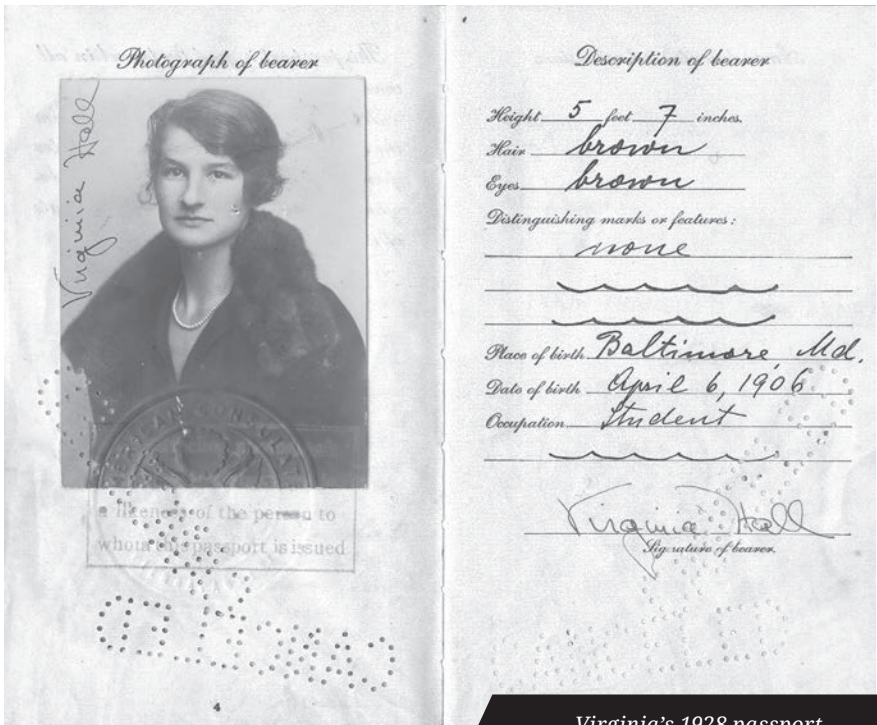 Photograph of bearer
Virginia Hall
AMERICAN CONSULATE
a likeness of the person to
whom this passport is issued
CANCELLED
4
Description of bearer
Height 5 feet 7 inches.
Hair brown
Eyes brown
Distinguishing marks or features:
none
Place of birth Baltimore, Md.
Date of birth April 6, 1906
Occupation Student
Virginia Hall
Signature of bearer.
Virginia's 1928 passport